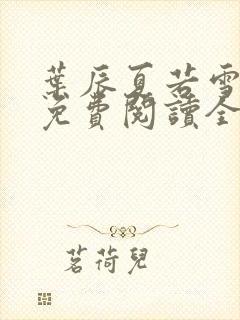 葉辰夏若雪
免費閱讀全
茗荷兒